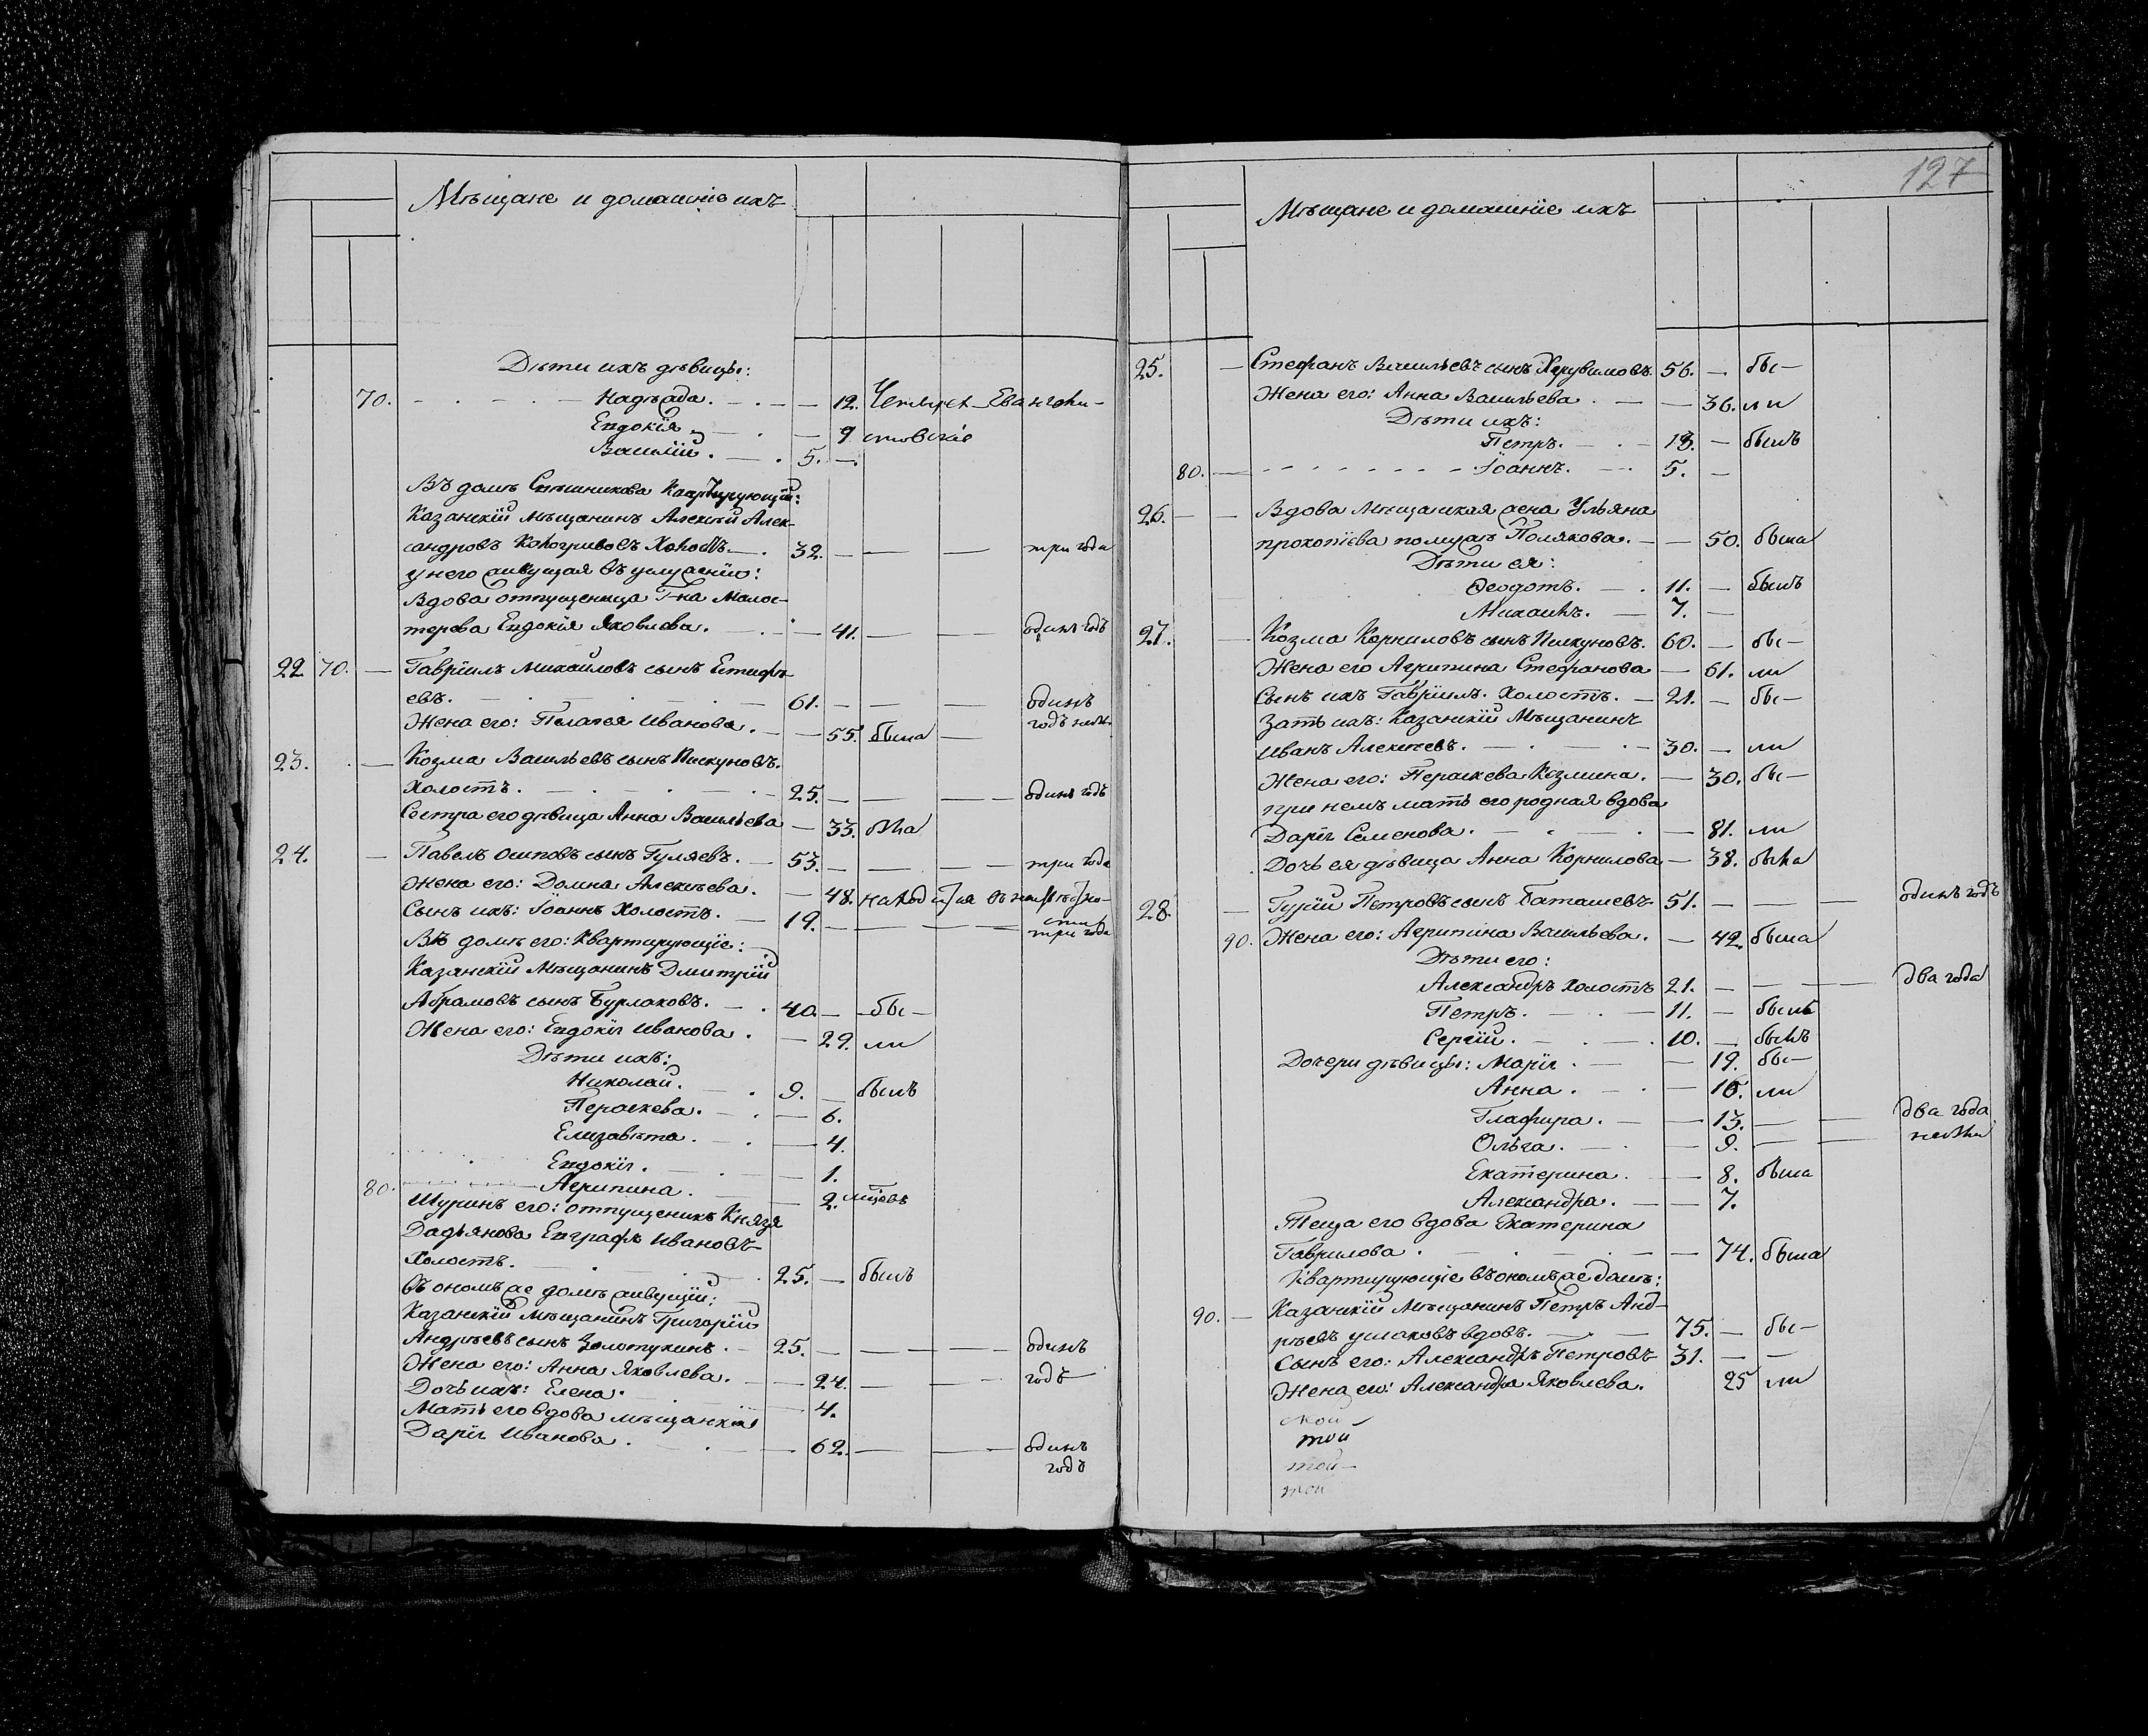 Мѣщане и домашніе ихъ
Дѣти ихъ дѣвицы:
70. Надѣжда. 12. Четырех-Евангели-
Евдокія 9 стовскіе
Василій. 5.
Въ домѣ Квартирующій:
Казанскій Мѣщанинъ Алексѣй Алек-
сандровъ Кологривовъ Холостъ. 32. три года
у него живущая въ услуженіи:
Вдова отпущеница Г-на Молос-
терова Евдокія Яковлева. 41. одинъ годъ
22. 70. Гавріилъ Михайловъ сынъ Естифѣ-
евъ. 61. одинъ
Жена его: Пелагея Иванова. 55. была годъ
23. Козма Васильевъ сынъ Пискуновъ.
Холостъ. 25. одинъ годъ
Сестра его дѣвица Анна Васильева 33. была
24. Павелъ Осиповъ сынъ Гуляевъ. 53. три года
Жена его: Домна Алексѣева. 48. находится въ
Сынъ ихъ: Іоаннъ Холостъ. 19. три года
Въ домѣ его: Квартирующіе:
Казанскій Мѣщанинъ Дмитрій
Абрамовъ сынъ Бурлаковъ. 40. бы-
Жена его: Евдокія Иванова. 29. ли
Дѣти ихъ:
Николай. 9. былъ
Параскева. 6.
Елизавета. 4.
Евдокія. 1.
80. Агрипина. 2. мцовъ
Шуринъ его: отпущеникъ Князя
Дадьянова Евграфъ Ивановъ
Холостъ. 25. былъ
Въ ономъ же домѣ живущій:
Казанскій Мѣщанинъ Григорій
Андрѣевъ сынъ Золотухинъ. 25. одинъ
Жена его: Анна Яковлева. 24. годъ
Дочь ихъ: Елена. 4.
Мать его вдова мѣщанская
Дарія Иванова. 62. одинъ
годъ
127
Мѣщане и домашніе ихъ
25. Стефанъ Васильевъ сынъ Херувимовъ. 56. бы-
Жена его: Анна Васильева. 36. ли
Дѣти ихъ:
Петръ. 13. былъ
80. Іоаннъ. 5.
26. Вдова Мѣщанская жена Ульяна
прокопіева по мужѣ Полякова. 50. была
Дѣти ея:
Ѳеодотъ. 11. былъ
Михаилъ. 7.
27. Козма Корниловъ сынъ Пискуновъ. 60. бы-
Жена его Агрипина Стефанова 61. ли
Сынъ ихъ Гавріилъ. Холостъ. 21. бы-
Зать ихъ: Казанскій Мѣщанинъ
Иванъ Алексѣевъ. 30. ли
Жена его: Параскева Козмина. 30. бы-
при немъ мать его родная вдова
Дарія Семенова. 81. ли
Дочь ея дѣвица Анна Корнилова 38. была
28. Гурій Петровъ сынъ Баташевъ. 51. одинъ годъ
90. Жена его: Агрипина Васильева. 42. была
Дѣти его:
Александръ холостъ 21. два года
Петръ. 11. былъ
Сергій. 10. былъ
Дочери дѣвицы: Марія 19. бы-
Анна. 16. ли
Глафира. 13. два года
Ольга. 9. небыли
Екатерина. 8. была
Александра. 7.
Теща его вдова Екатерина
Гаврилова. 74. была
Квартирующіе въ ономъ же домѣ:
90. Казанскій Мѣщанинъ Петръ Анд-
рѣевъ ушаковъ вдовъ. 75. бы-
Сынъ его: Александръ Петровъ 31.
Жена его: Александра Яковлева. 25 ли
той